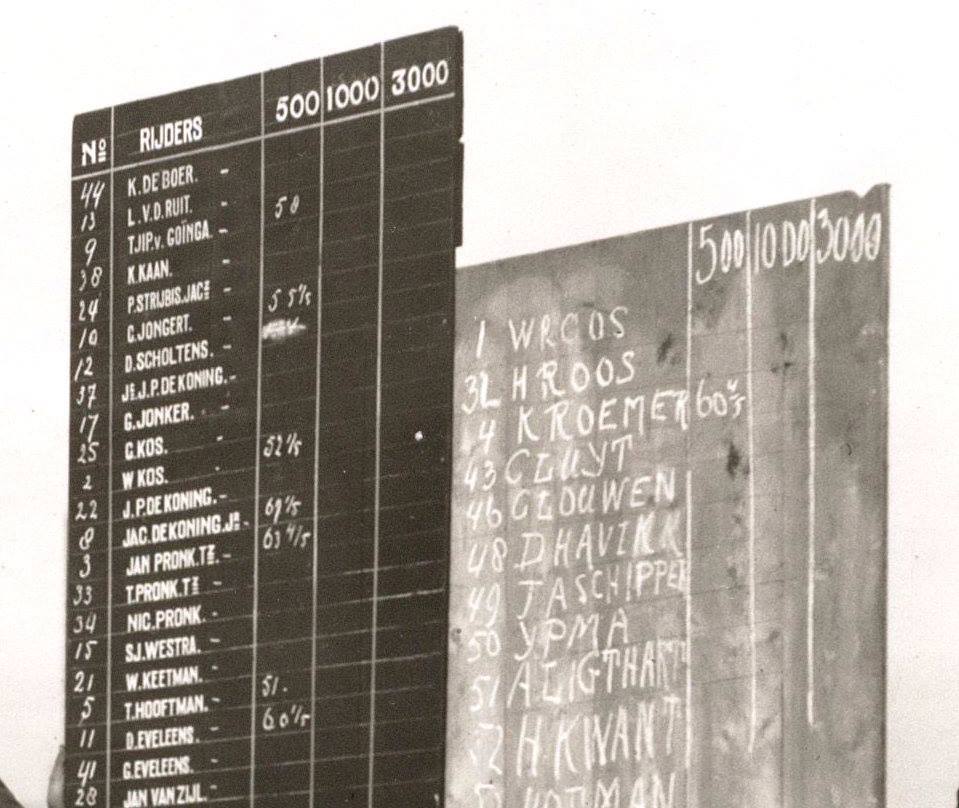 Nº RIJDERS 500 1000 3000
44 K. DE BOER. -
13 L. V. D. RUIT. - 58
9 TJIP. v. GOÏNGA. -
38 K. KAAN. -
24 P. STRIJBIS. JACZ - 55 1/5
10 C. JONGERT. -
12 D. SCHOLTENS. -
37 JR. J. P. DE KONING. -
17 G. JONKER. -
25 C. KOS. - 52 1/5
2 W KOS. -
22 J. P. DE KONING. - 69 1/5
8 JAC. DE KONING. JR - 63 4/5
3 JAN PRONK. TZ -
33 T. PRONK. TZ -
34 NIC. PRONK. -
15 S.J. WESTRA. -
21 W. KEETMAN. - 51.
5 T. HOOFTMAN. - 60 1/5
11 D. EVELEENS. -
41 G. EVELEENS. -
28 JAN VAN ZIJL. -
500 1000 3000
1 W ROOS
32 H ROOS
4 K ROEMER 60
43 C LUYT
46 C LOUWEN
48 D HAVIKK
49 J A SCHIPPER
50 YPMA
51 A LIGTHART
2 H KWANT